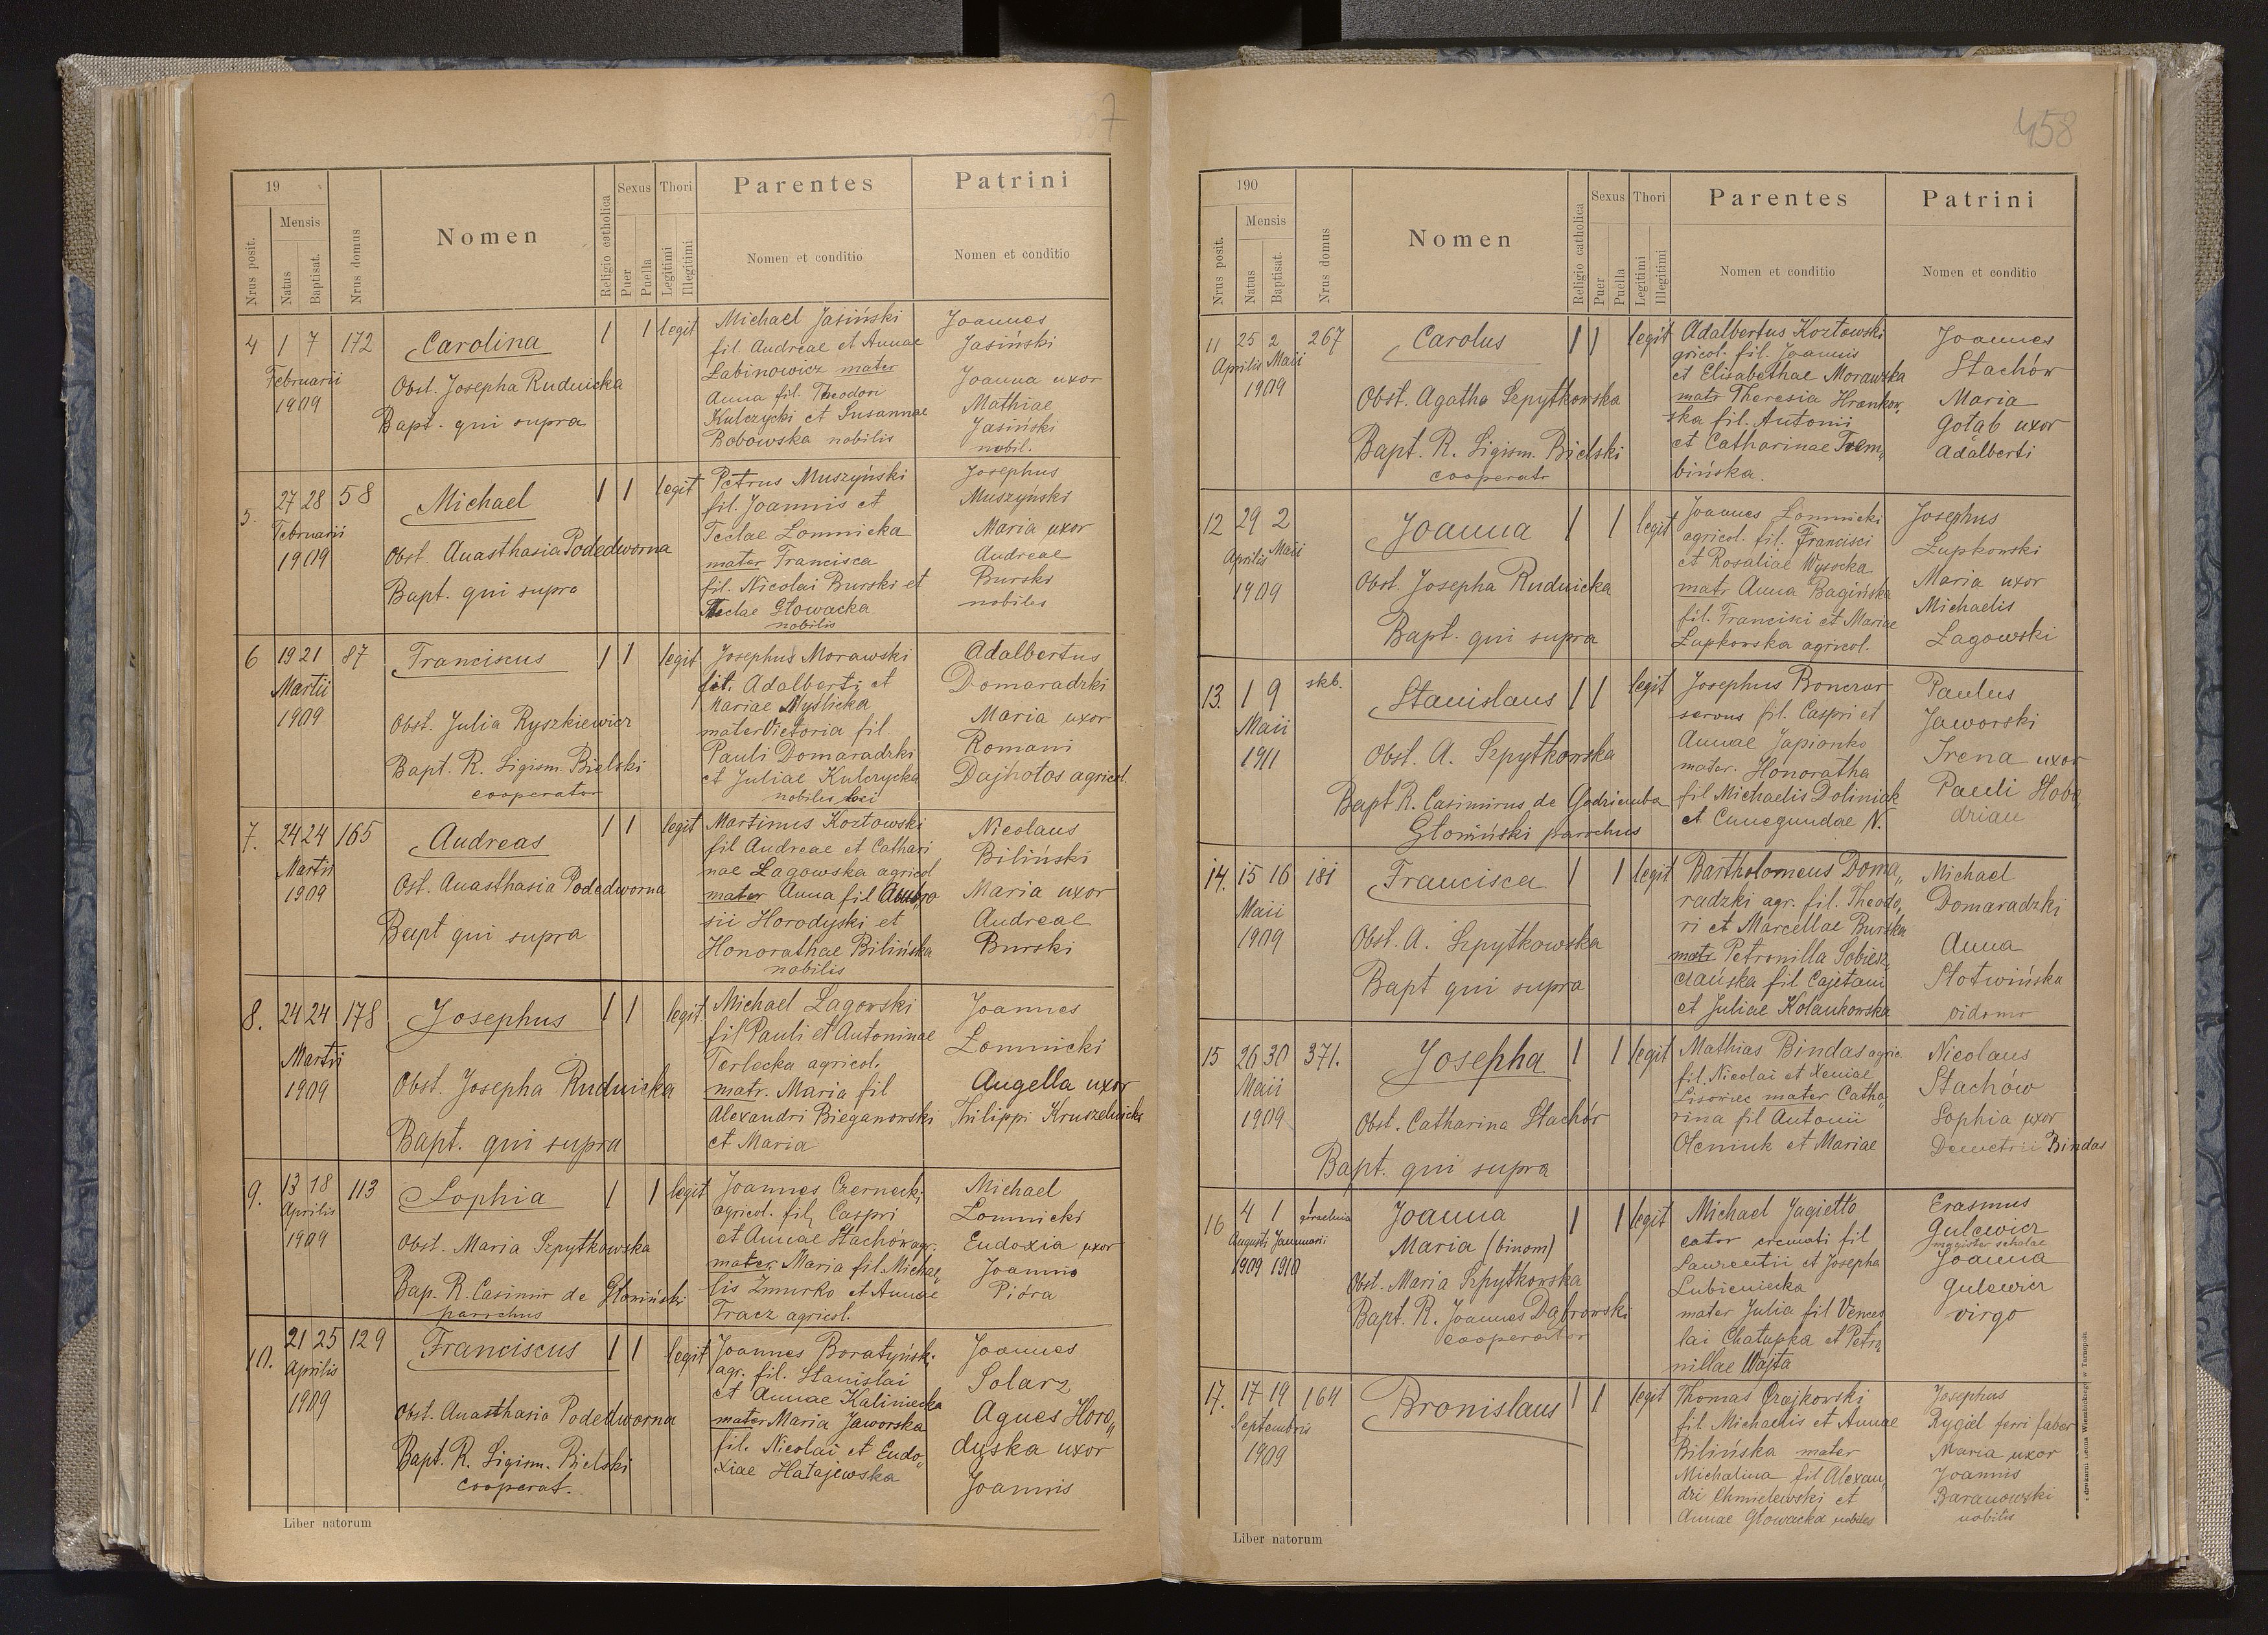 7
19
Nrus posit.
Mensis
Natus
Baptisat.
Nrus domus
Nomen
Religio catholica
Sexus
Puer
Puella
Thori
Legitimi
Illegitimi
Parentes
Nomen et conditio
Patrini
Nomen et conditio
4 1 7 172
Februarii
1909
Carolina
Obst. Josepha Rudnicka
Bapt. qui supra
1 1 legit
Michael Jasiński
fil Andreae et Annae
Łabinowicz mater
Anna fil. Theodori
Kulczycki et Susannae
Bobowska nobilis
Joannes
Jasiński
Joanna uxor
Mathiae
Jasiński
nobil.
5. 27 28 58
Februarii
1909
Michael
Obst. Anasthasia Podedworna
Bapt. qui supra
1 1 legit
Petrus Muszyński
fil. Joannis et
Teclae Łomnicka
mater Francisca
fil. Nicolai Burski et
Teclae Głowacka
nobilis
Josephus
Muszyński
Maria uxor
Andreae
Burski
nobiles
6 19 21 87
Martii
1909
Franciscus
Obst. Julia Ryszkiewicz
Bapt. R. Sigism. Bielski
cooperator
1 1 legit
Josephus Morawski
fil. Adalberti et
Mariae Myslicka
mater Victoria fil.
Pauli Domaradzki
et Juliae Kulczycka
nobiles loci
Adalbertus
Domaradzki
Maria uxor
Romani
Dajhotos agricol.
7. 24 24 165
Martii
1909
Andreas
Ost. Anasthasia Podedworna
Bapt qui supra
1 1 legit
Martinus Kozłowski
fil Andreae et Cathari
nae Łagowska agricol
mater Anna fil Ambro
sii Horodyski et
Honorathae Bilińska
nobilis
Nicolaus
Biliński
Maria uxor
Andreae
Burski
8. 24 24 178
Martii
1909
Josephus
Obst. Josepha Rudnicka
Bapt. qui supra
1 1 legit
Michael Łagowski
fil Pauli et Antoninae
Terlecka agricol.
matr. Maria fil
Alexandri Bieganowski
et Maria
Joannes
Łomnicki
Angella uxor
Philippi Kruszelnicki
9. 13 18 113
Aprilis
1909
Sophia
Obst. Maria Szpytkowska
Bap. R. Casimir de Głowiński
parochus
1 1 legit
Joannes Czernecki
agricol. fil. Caspri
et Annae Stachów agr.
mater Maria fil Michae„
lis Żmurko et Annae
Tracz agricol.
Michael
Łomnicki
Eudoxia uxor
Joannis
Pióra
10. 21 25 129
Aprilis
1909
Franciscus
Obst. Anasthasia Podedworna
Bapt. R. Sigism. Bielski
cooperat.
1 1 legit
Joannes Boratyński
agr. fil. Stanislai
et Annae Kaliniecka
mater Maria Jaworska
fil. Nicolai et Eudo„
xiae Hatajewska
Joannes
Solarz
Agnes Horo„
dyska uxor
Joannis
Liber natorum
458
190
Nrus posit.
Mensis
Natus
Baptisat.
Nrus domus
Nomen
Religio catholica
Sexus
Puer
Puella
Thori
Legitimi
Illegitimi
Parentes
Nomen et conditio
Patrini
Nomen et conditio
11 25 2 267
Aprilis Maii
1909
Carolus
Obst. Agatha Szpytkowska
Bapt. R. Sigism. Bielski
cooperatr
1 1 legit
Adalbertus Kozłowski
gricol. fil. Joannis
et Elisabethae Morawska
matr Theresia Hrankow„
ska fil. Antoni
et Catharinae Trem„
bińska.
Joannes
Stachów
Maria
Gołąb uxor
Adalberti
12 29 2
Aprilis Maii
1909
Joanna
Obst. Josepha Rudnicka
Bapt. qui supra
1 1 legit
Joannes Łomnicki
agricol. fil. Francisci
et Rosaliae Wysocka
matr Anna Bagińska
fil. Francisci et Mariae
Łupkowska agricol.
Josephus
Łupkowski
Maria uxor
Michaelis
Łagowski
13. 1 9 skb.
Maii
1911
Stanislaus
Obst. A. Szpytkowska
Bapt R. Casimirus de Godziemba
Głowiński parochus
1 1 legit
Josephus Bonczar
servus fil. Caspri et
Annae Japianko
mater. Honoratha
fil Michaelis Doliniak
et Cunegundae N.
Paulus
Jaworski
Irena uxor
Pauli Hoba
drian
14. 15 16 181
Maii
1909
Francisca
Obst. A. Szpytkowska
Bapt qui supra
1 1 legit
Bartholomeus Doma„
radzki agr. fil. Theodo„
ri et Marcellae Burska
matr Petronilla Sobiesz„
czańska fil Cajetani
et Juliae Kolankowska
Michael
Domaradzki
Anna
Słotwińska
vidomo
15 26 30 371.
Maii
1909
Josepha
Obst. Catharina Stachór
Bapt. qui supra
1 1 legit
Mathias Bindas agric.
fil. Nicolai et Xeniae
Lisowiec mater Catha„
rina fil Antonii
Oleniuk et Mariae
Nicolaus
Stachów
Sophia uxor
Demetrii Bindas
16 4 1 gorzelnia
Augusti Januarii
1909 1910
Joanna
Maria (binom)
Obst. Maria Szpytkowska
Bapt. R. Joannes Dąbrowski
cooperator
1 1 legit
Michael Jagiełło
cator cremati fil
Laurentii et Josepha
Lubieniecka
mater Julia fil Vences
lai Chałupka et Petro
nillae Wajta
Erasmus
Gulewicz
magister scholae
Joanna
Gulewicz
virgo
17. 17 19 164
Septembris
1909
Bronislaus
1 1 legit
Thomas Orajkowski
fil. Michaelis et Annae
Bilińska mater
Michalina fil Alexan„
dri Chmielewski et
Annae Głowacka nobiles
Josephus
Rygiel ferri faber
Maria uxor
Joannis
Baranowski
nobilis
Z drukarni Leona Wierzbickiego w Tarnopolu.
Liber natorum